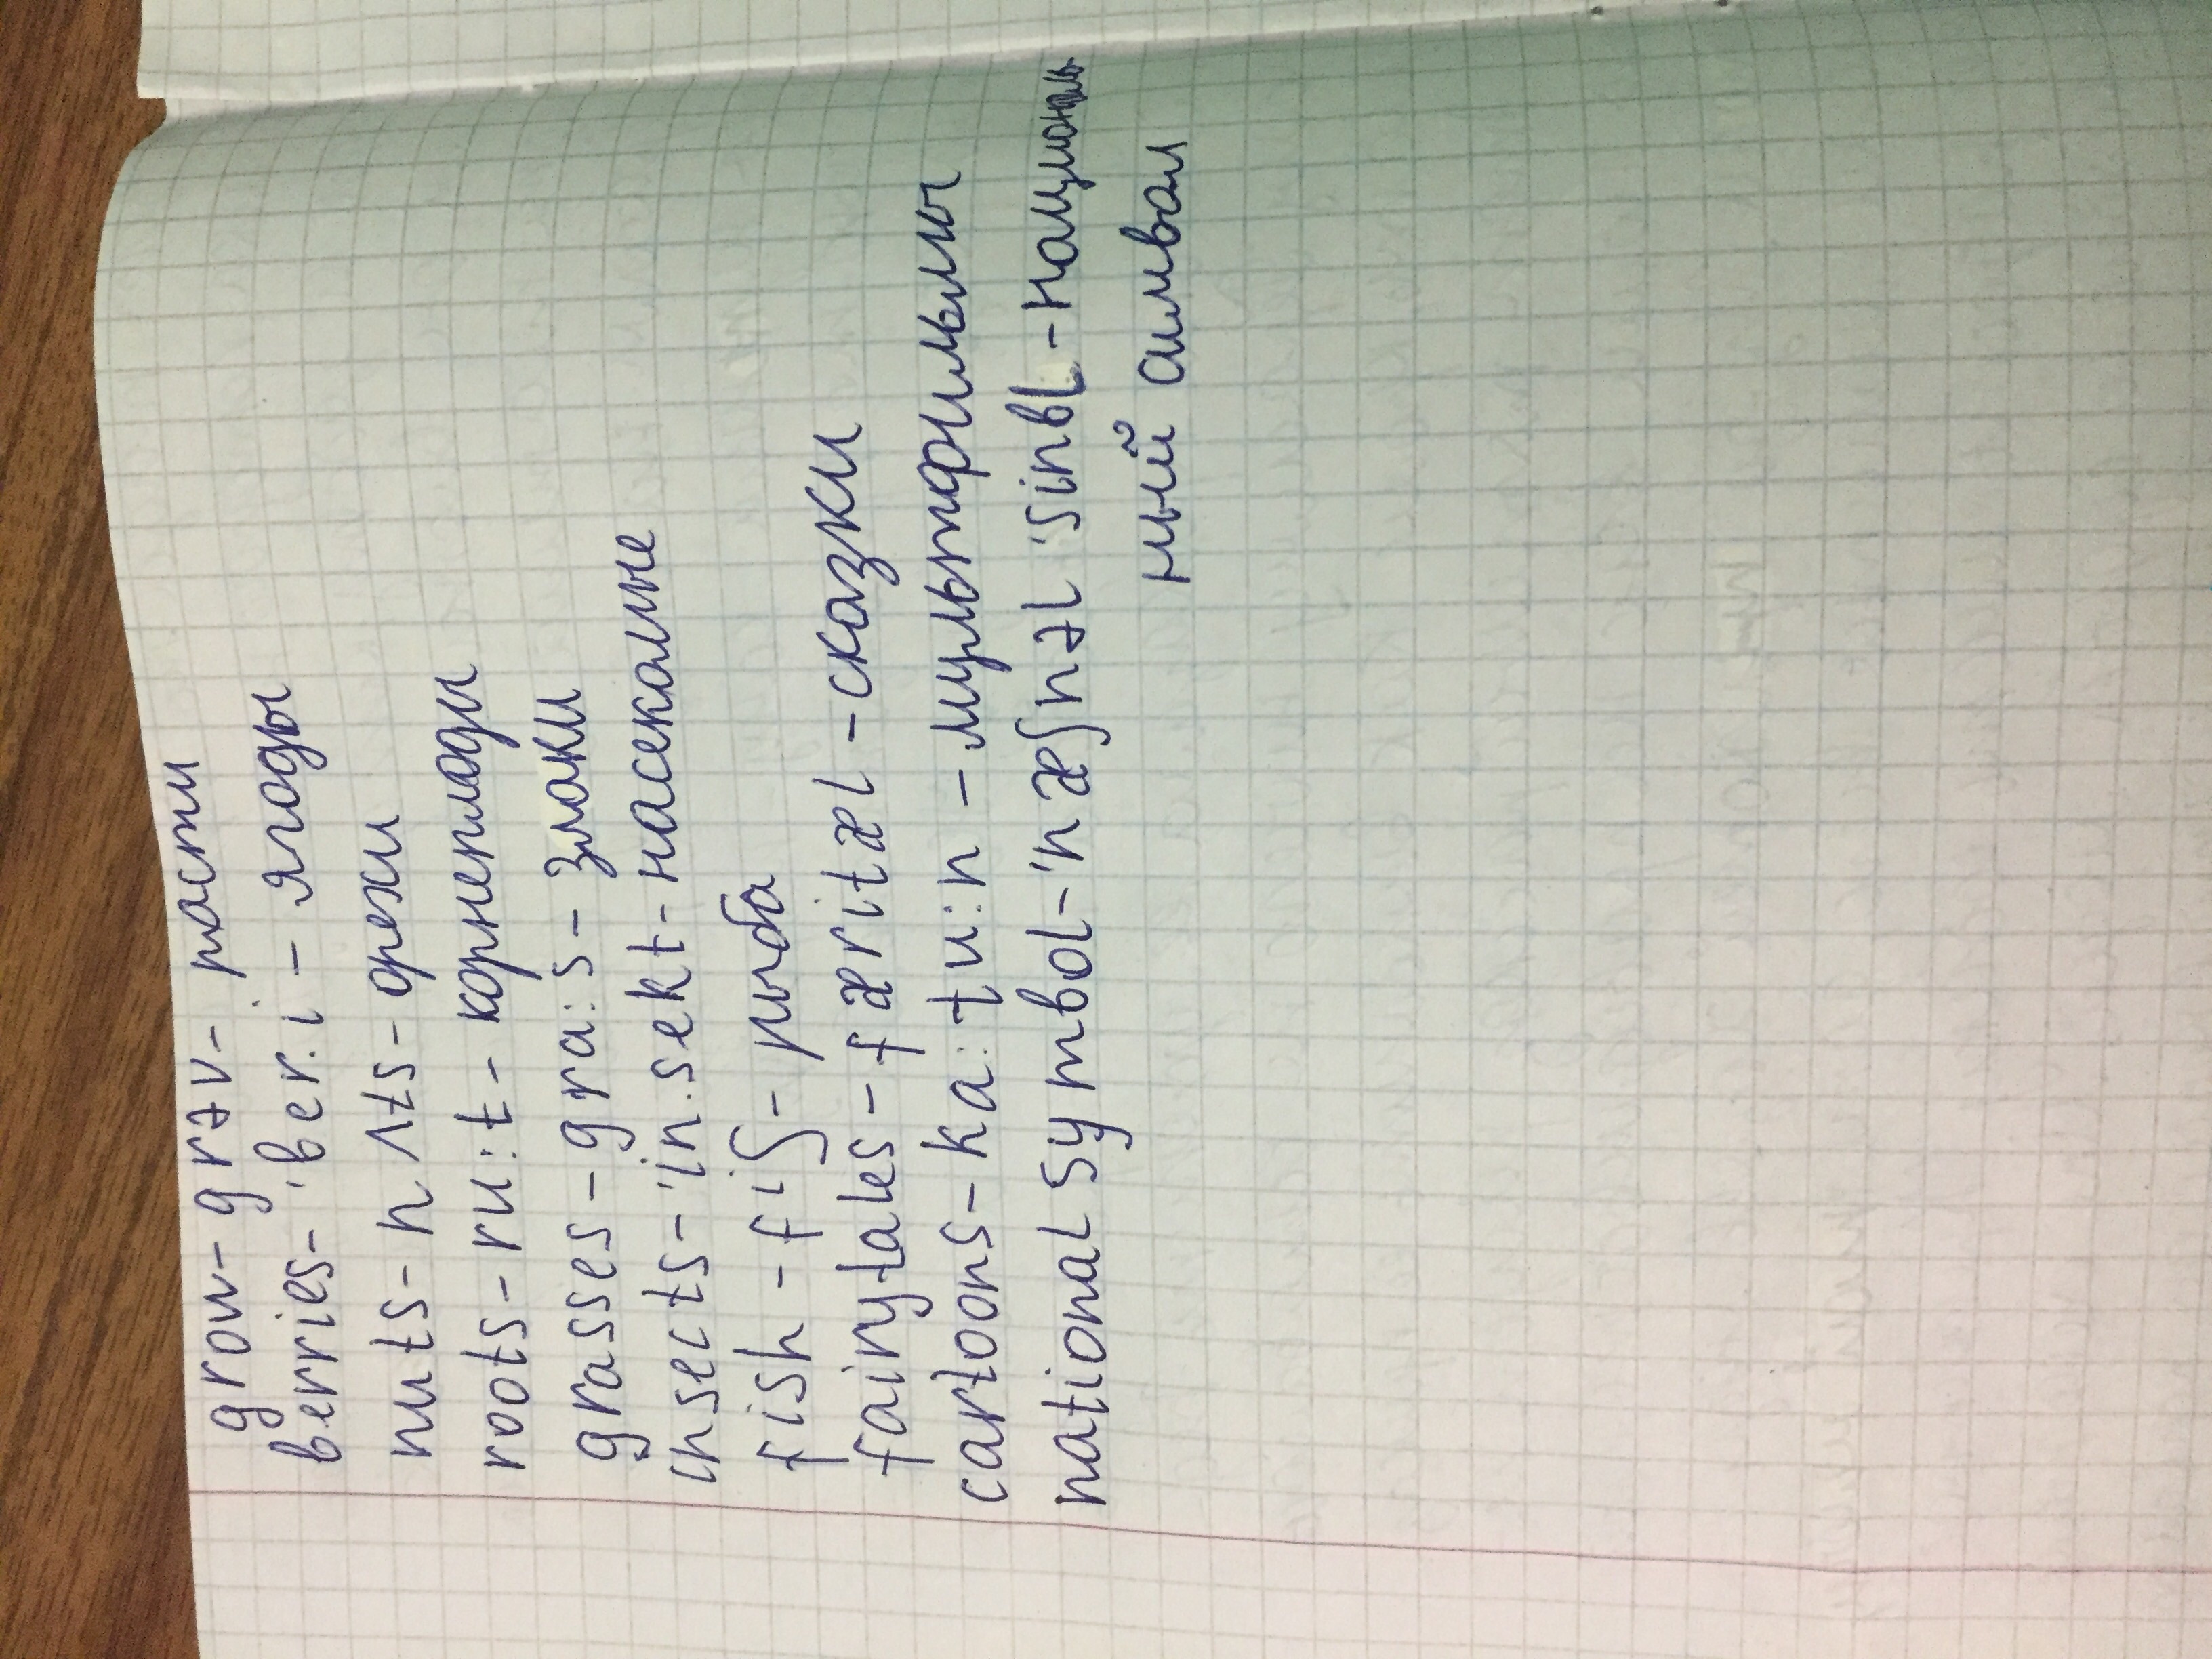 grow - grəv - расти
berries - 'ber.i - ягоды
nuts - nʌts - орехи
roots - ru:t - корнеплоды
grasses - gra:s - злаки
insects - 'in.sekt - насекомые
fish - fiʃ - рыба
fairytales - færitæl - сказки
cartoons - ka:tu:n - мультфильмы
national symbol - 'næʃnəl 'sinbl - националь
ный символ